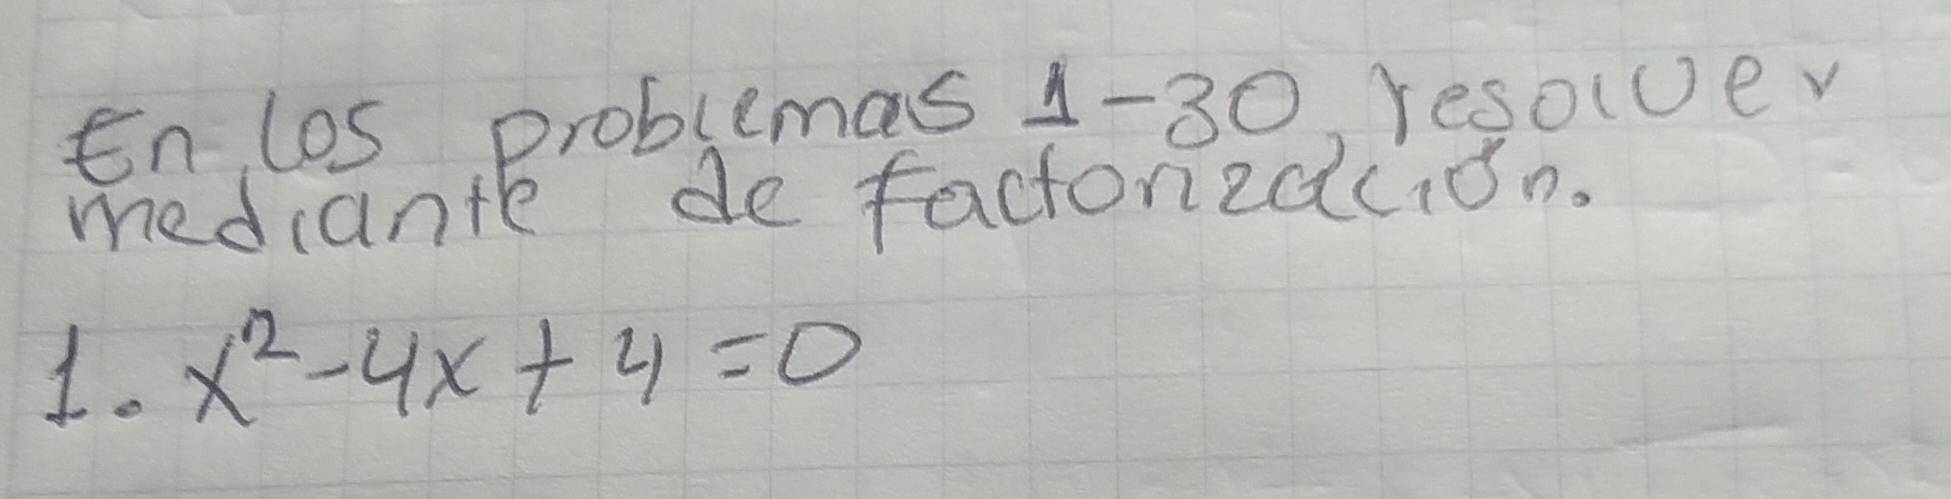 En los problemas 1-30, resolver
mediante de factorización.
1. x² - 4x + 4 = 0